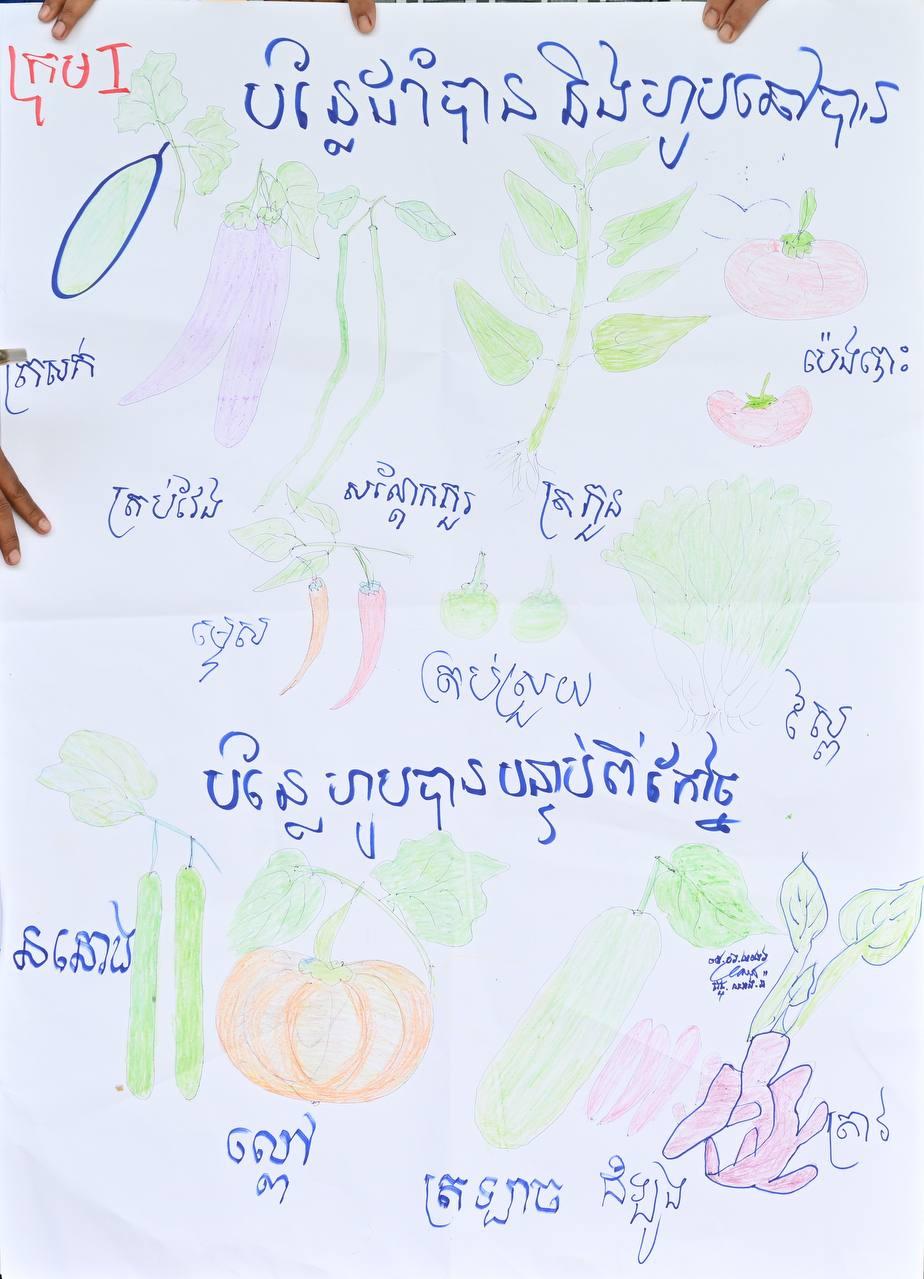 ក្រុម I
បន្លែដាំបាន និងហូបនៅបាន
ត្រសក់
ប៉េងប៉ោះ
ត្រប់វែង
សណ្ដែកកួរ
ត្រកួន
ម្ទេស
ត្រប់ស្រួយ
ស្ពៃ
បន្លែហូបបានបន្ទាប់ពីកែច្នៃ
ននោង
ល្ពៅ
ត្រឡាច
ដំឡូង
ត្រាវ